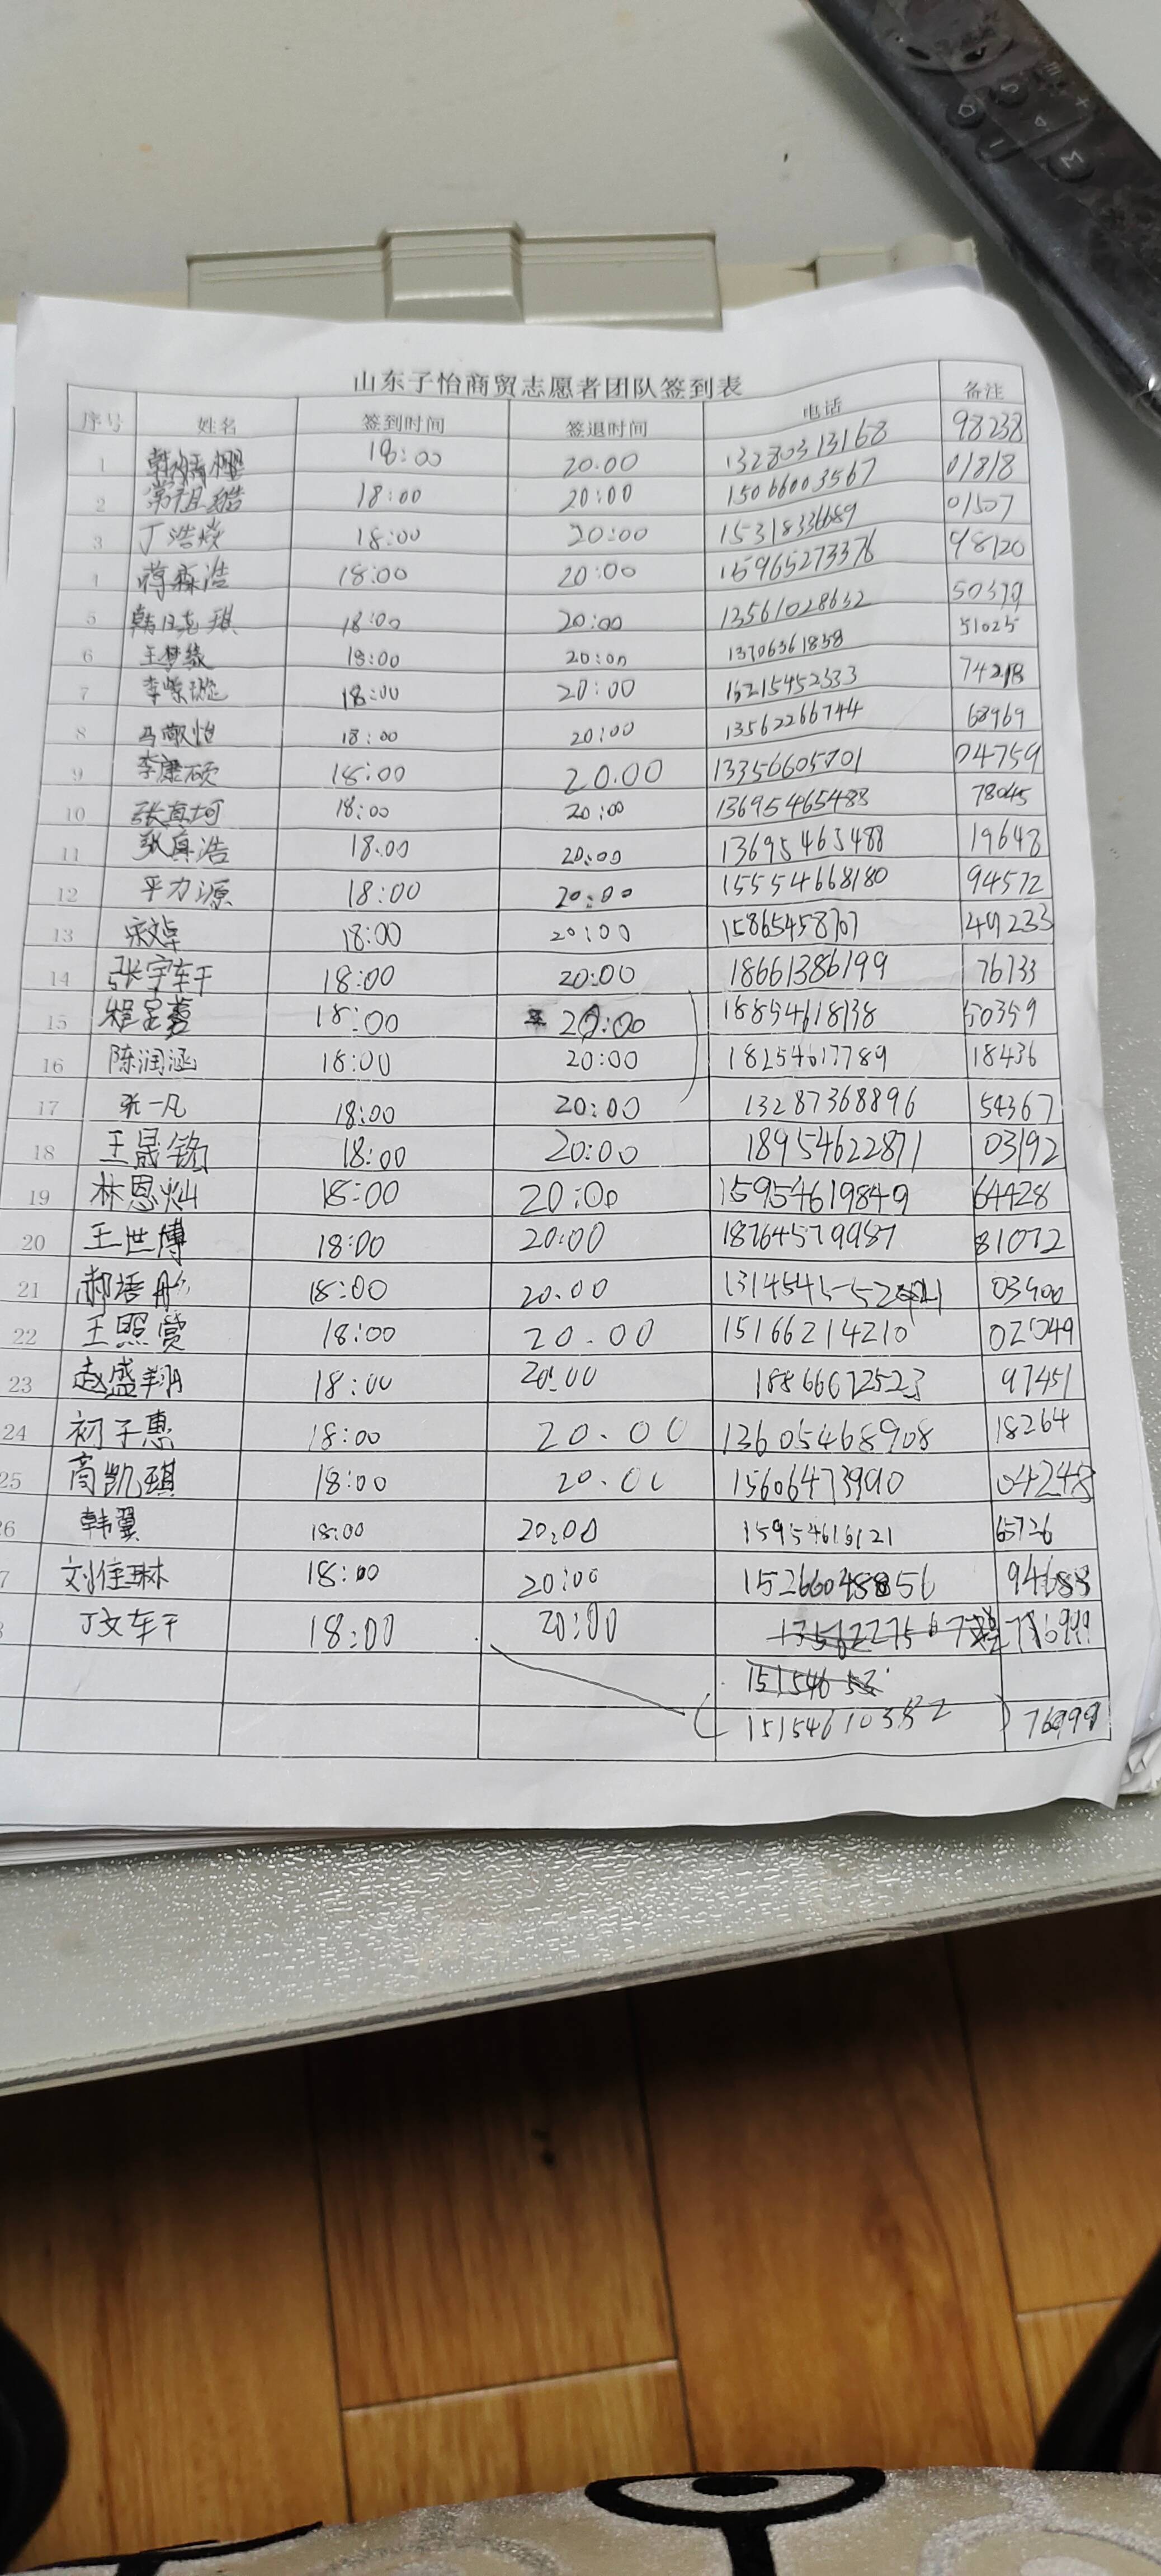 山东子怡商贸志愿者团队签到表
序号 姓名 签到时间 签退时间 电话 备注
1 18:00 20.00 13280313168 98238
2 18:00 20:00 15066003567 01818
3 丁浩焱 18:00 20:00 15318336689 01507
4 蒋森浩 18:00 20:00 15965273376 98120
5 18:00 20:00 13561028632 50379
6 王梦缘 18:00 20:00 13706361838 51025
7 李紫璇 18:00 20:00 16215452333 74218
8 18:00 20:00 13562266744 68969
9 李康硕 18:00 20.00 13356605701 04759
10 张真珂 18:00 20:00 13695465488 78045
11 张真浩 18:00 20:00 13695465488 19648
12 平力源 18:00 20:00 15554668180 94572
13 18:00 20:00 15865458707 49233
14 张宇轩 18:00 20:00 18661386199 76133
15 18:00 20:00 18854618138 50359
16 陈润涵 18:00 20:00 18254617789 18436
17 张一凡 18:00 20:00 13287368896 54367
18 王晟铭 18:00 20:00 18954622871 03192
19 林恩灿 18:00 20:00 15954619849 64428
20 王世博 18:00 20:00 18764579987 81072
21 18:00 20.00 03900
22 王照赏 18:00 20.00 15166214210 02049
23 赵盛翔 18:00 20:00 18866672523 97451
24 初子惠 18:00 20.00 13605468908 18264
25 高凯琪 18:00 20.00 15606473990 04248
26 韩翼 18:00 20:00 15954616121 65726
7 刘佳琳 18:00 20:00 94688
丁文轩 18:00 20:00
15154610332 76999